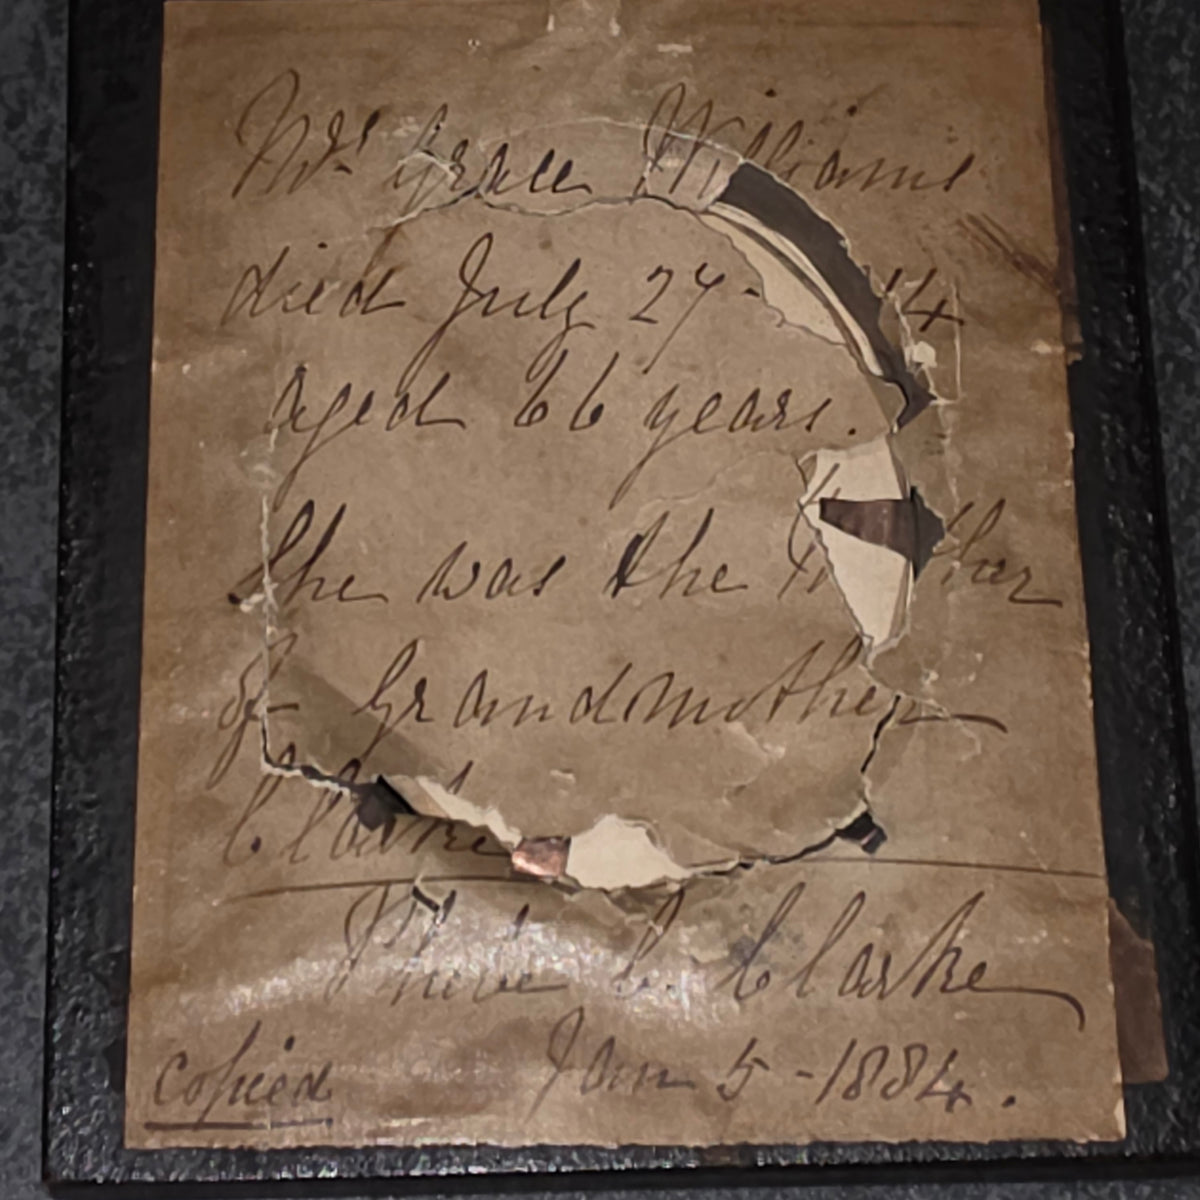 Mrs Grace Williams
died July 27- 14
aged 66 years.
She was the Mother
of Grandmother
Clarke
Phebe C. Clarke
copied Jan 5 - 1884.